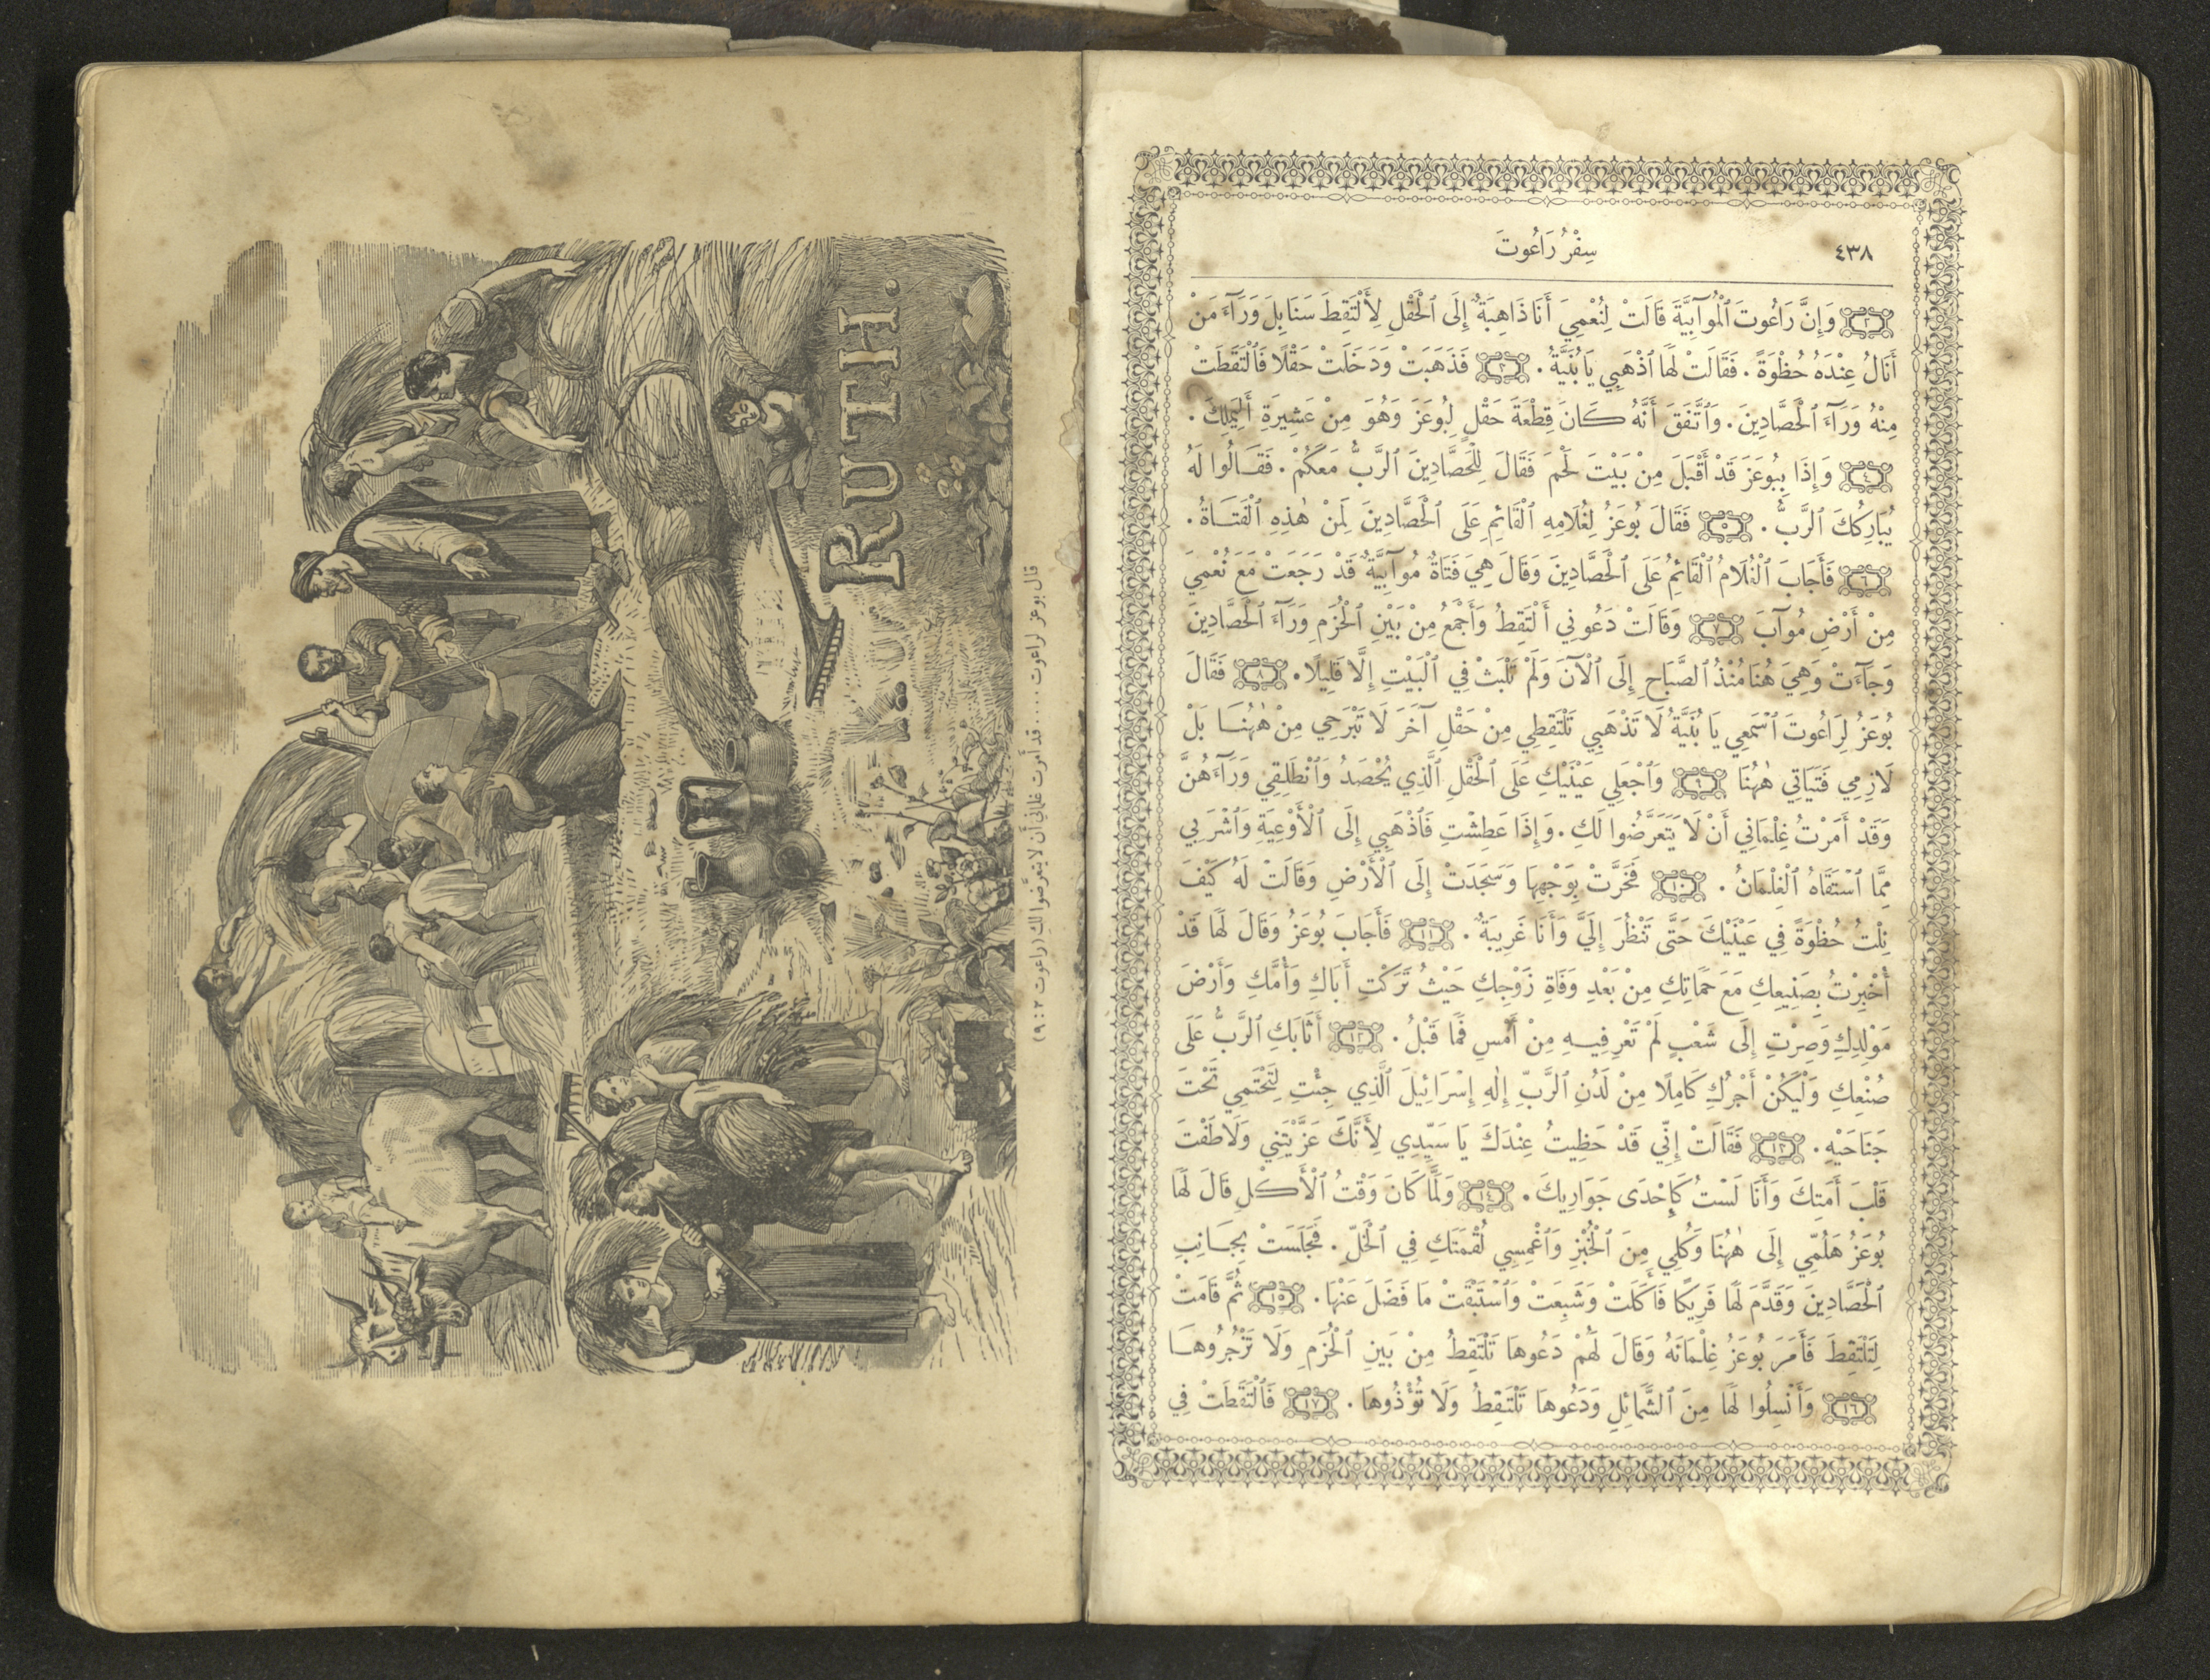 ٤٣٨
سِفْرُ رَاعُوتَ
٢ وَإِنَّ رَاعُوتَ ٱلْمُوآبِيَّةَ قَالَتْ لِنُعْمِيَ أَنَا ذَاهِبَةٌ إِلَى ٱلْحَقْلِ لِأَلْتَقِطَ سَنَابِلَ وَرَآءَ مَنْ
أَنَالُ عِنْدَهُ حُظْوَةً. فَقَالَتْ لَهَا ٱذْهَبِي يَا بُنَيَّةُ. ٣ فَذَهَبَتْ وَدَخَلَتْ حَقْلًا فَٱلْتَقَطَتْ
مِنْهُ وَرَآءَ ٱلْحَصَّادِينَ. وَٱتَّفَقَ أَنَّهُ كَانَ قِطْعَةَ حَقْلٍ لِبُوعَزَ وَهُوَ مِنْ عَشِيرَةِ أَلِيمَلِكَ.
٤ وَإِذَا بِبُوعَزَ قَدْ أَقْبَلَ مِنْ بَيْتَ لَحْمَ فَقَالَ لِلْحَصَّادِينَ ٱلرَّبُّ مَعَكُمْ. فَقَالُوا لَهُ
يُبَارِكُكَ ٱلرَّبُّ. ٥ فَقَالَ بُوعَزُ لِغُلَامِهِ ٱلْقَائِمِ عَلَى ٱلْحَصَّادِينَ لِمَنْ هٰذِهِ ٱلْفَتَاةُ.
٦ فَأَجَابَ ٱلْغُلَامُ ٱلْقَائِمُ عَلَى ٱلْحَصَّادِينَ وَقَالَ هِيَ فَتَاةٌ مُوآبِيَّةٌ قَدْ رَجَعَتْ مَعَ نُعْمِيَ
مِنْ أَرْضِ مُوآبَ ٧ وَقَالَتْ دَعُونِي أَلْتَقِطُ وَأَجْمَعُ مِنْ بَيْنِ ٱلْحُزَمِ وَرَآءَ ٱلْحَصَّادِينَ
وَجَآءَتْ وَهِيَ هُنَا مُنْذُ ٱلصَّبَاحِ إِلَى ٱلْآنَ وَلَمْ تَلْبَثْ فِي ٱلْبَيْتِ إِلَّا قَلِيلًا. ٨ فَقَالَ
بُوعَزُ لِرَاعُوتَ ٱسْمَعِي يَا بُنَيَّةُ لَا تَذْهَبِي تَلْتَقِطِي مِنْ حَقْلٍ آخَرَ لَا تَبْرَحِي مِنْ هٰهُنَا بَلْ
لَازِمِي فَتَيَاتِي هٰهُنَا ٩ وَٱجْعَلِي عَيْنَيْكِ عَلَى ٱلْحَقْلِ ٱلَّذِي يُحْصَدُ وَٱنْطَلِقِي وَرَآءَهُنَّ
وَقَدْ أَمَرْتُ غِلْمَانِي أَنْ لَا يَتَعَرَّضُوا لَكِ. وَإِذَا عَطِشْتِ فَٱذْهَبِي إِلَى ٱلْأَوْعِيَةِ وَٱشْرَبِي
مِمَّا ٱسْتَقَاهُ ٱلْغِلْمَانُ. ١٠ فَخَرَّتْ بِوَجْهِهَا وَسَجَدَتْ إِلَى ٱلْأَرْضِ وَقَالَتْ لَهُ كَيْفَ
نِلْتُ حُظْوَةً فِي عَيْنَيْكَ حَتَّى تَنْظُرَ إِلَيَّ وَأَنَا غَرِيبَةٌ. ١١ فَأَجَابَ بُوعَزُ وَقَالَ لَهَا قَدْ
أُخْبِرْتُ بِصَنِيعِكِ مَعَ حَمَاتِكِ مِنْ بَعْدِ وَفَاةِ زَوْجِكِ حَيْثُ تَرَكْتِ أَبَاكِ وَأُمَّكِ وَأَرْضَ
مَوْلِدِكِ وَصِرْتِ إِلَى شَعْبٍ لَمْ تَعْرِفِيهِ مِنْ أَمْسِ فَمَا قَبْلُ. ١٢ أَثَابَكِ ٱلرَّبُّ عَلَى
صُنْعِكِ وَلْيَكُنْ أَجْرُكِ كَامِلًا مِنْ لَدُنِ ٱلرَّبِّ إِلٰهِ إِسْرَائِيلَ ٱلَّذِي جِئْتِ لِتَحْتَمِي تَحْتَ
جَنَاحَيْهِ. ١٣ فَقَالَتْ إِنِّي قَدْ حَظِيتُ عِنْدَكَ يَا سَيِّدِي لِأَنَّكَ عَزَّيْتَنِي وَلَاطَفْتَ
قَلْبَ أَمَتِكَ وَأَنَا لَسْتُ كَإِحْدَى جَوَارِيكَ. ١٤ وَلَمَّا كَانَ وَقْتُ ٱلْأَكْلِ قَالَ لَهَا
بُوعَزُ هَلُمِّي إِلَى هٰهُنَا وَكُلِي مِنَ ٱلْخُبْزِ وَٱغْمِسِي لُقْمَتَكِ فِي ٱلْخَلِّ. فَجَلَسَتْ بِجَانِبِ
ٱلْحَصَّادِينَ وَقَدَّمَ لَهَا فَرِيكًا فَأَكَلَتْ وَشَبِعَتْ وَٱسْتَبْقَتْ مَا فَضَلَ عَنْهَا. ١٥ ثُمَّ قَامَتْ
لِتَلْتَقِطَ فَأَمَرَ بُوعَزُ غِلْمَانَهُ وَقَالَ لَهُمْ دَعُوهَا تَلْتَقِطُ مِنْ بَيْنِ ٱلْحُزَمِ وَلَا تَزْجُرُوهَا
١٦ وَأَنْسِلُوا لَهَا مِنَ ٱلشَّمَائِلِ وَدَعُوهَا تَلْتَقِطُ وَلَا تُؤْذُوهَا. ١٧ فَٱلْتَقَطَتْ فِي
RUTH.
قال بوعز لراعوت .... قد أمرت غلماني أن لا يتعرّضوا لكِ (راعوت ٢ : ٩)